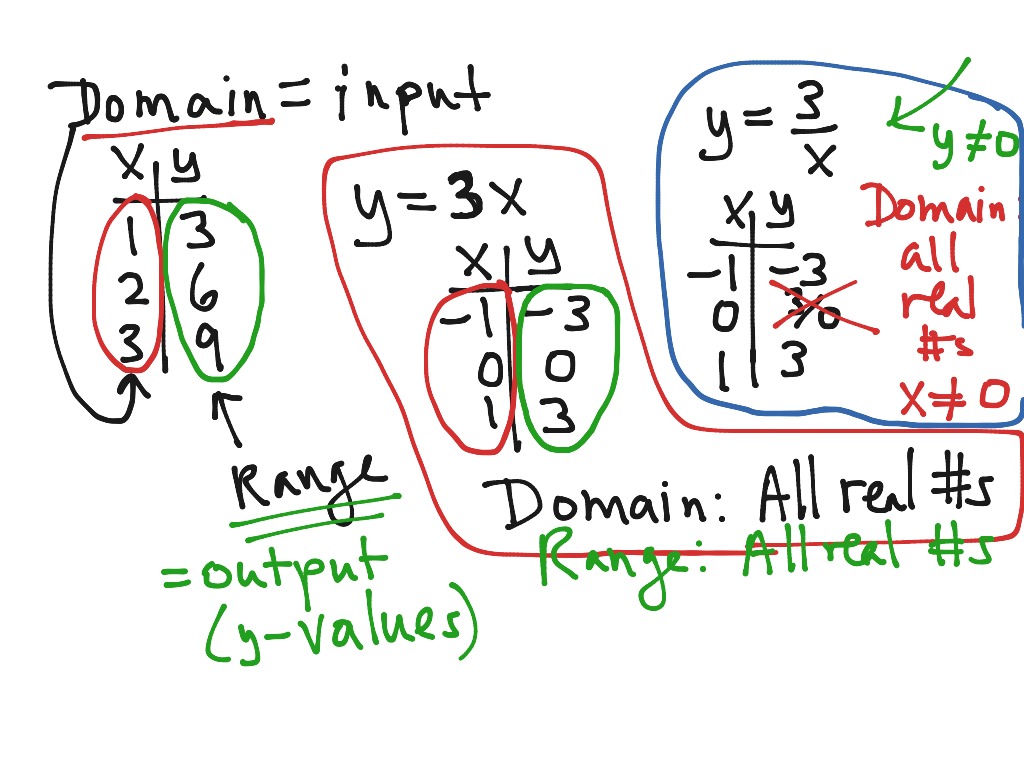 Domain = input
x y
1 3
2 6
3 9
Range
= output
(y-values)
y = 3x
x y
-1 -3
0 0
1 3
Domain: All real #s
Range: All real #s
y = 3/x
y ≠ 0
x y
-1 -3
0 3/0
1 3
Domain
all
real
#s
x ≠ 0